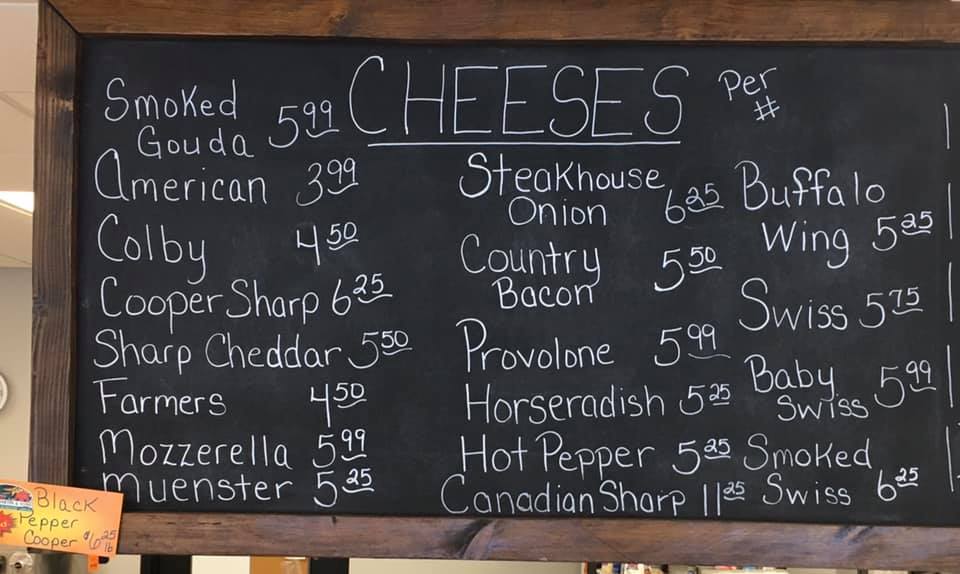 CHEESES Per #
Smoked
Gouda 5.99
American 3.99
Colby 4.50
Cooper Sharp 6.25
Sharp Cheddar 5.50
Farmers 4.50
Mozzerella 5.99
Muenster 5.25
Steakhouse
Onion 6.25
Country
Bacon 5.50
Provolone 5.99
Horseradish 5.25
Hot Pepper 5.25
Canadian Sharp 11.25
Buffalo
Wing 5.25
Swiss 5.75
Baby
Swiss 5.99
Smoked
Swiss 6.25
Black
Pepper
Cooper $6.25 lb